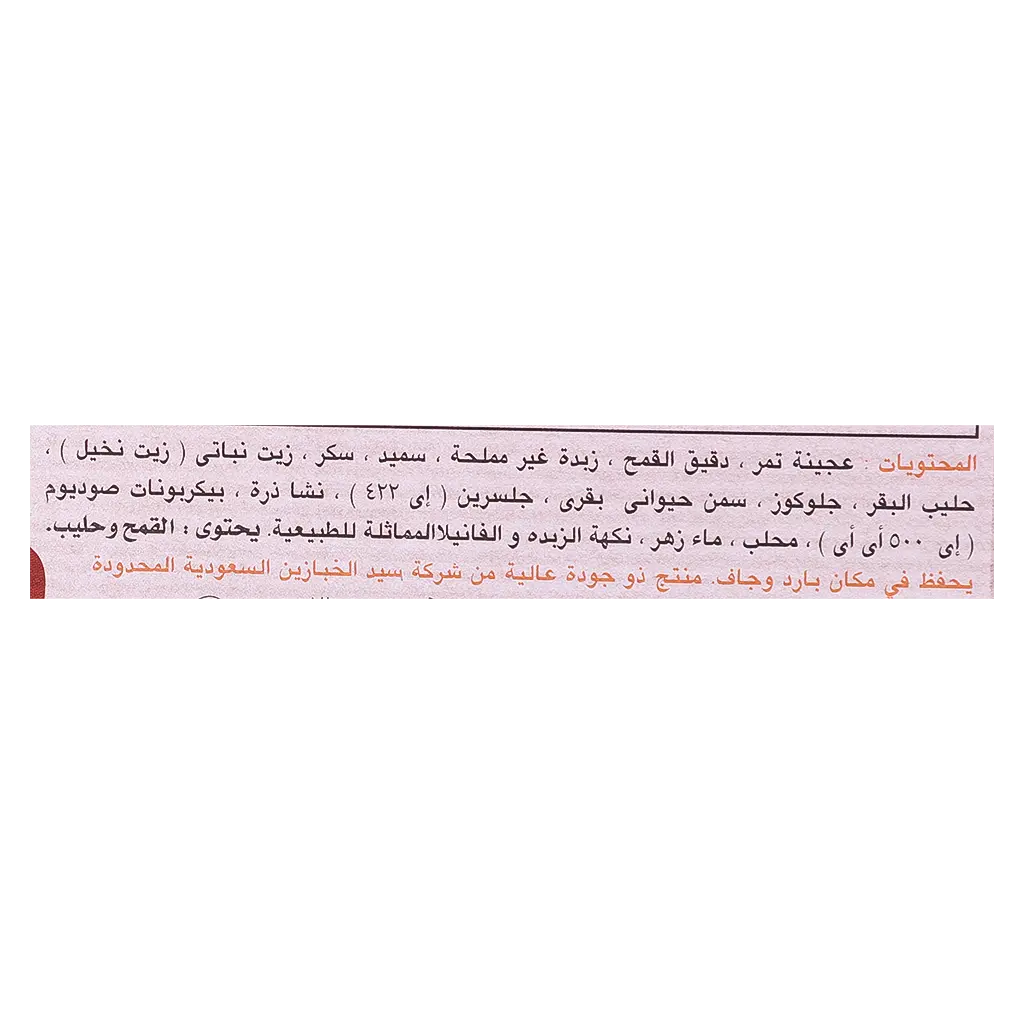 المحتويات : عجينة تمر ، دقيق القمح ، زبدة غير مملحة ، سميد ، سكر ، زيت نباتى ( زيت نخيل ) ،
حليب البقر ، جلوكوز ، سمن حيوانى بقرى ، جلسرين ( إى ٤٢٢ ) ، نشا ذرة ، بيكربونات صوديوم
( إى ٥٠٠ أى أى ) ، محلب ، ماء زهر ، نكهة الزبده و الفانيلاالمماثلة للطبيعية. يحتوى : القمح وحليب.
يحفظ في مكان بارد وجاف. منتج ذو جودة عالية من شركة سيد الخبازين السعودية المحدودة